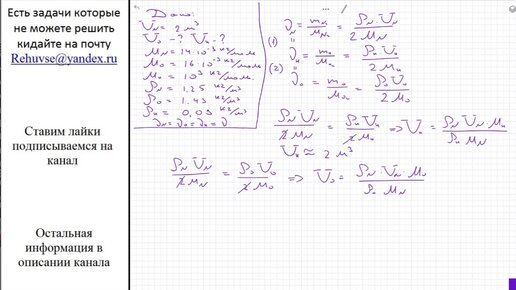 Есть задачи которые
не можете решить
кидайте на почту
Rehuvse@yandex.ru
Ставим лайки
подписываемся на
канал
Остальная
информация в
описании канала
Дано:
V_N = 2 м³
V_н - ? V_о - ?
M_N = 14·10⁻³ кг/моль
M_о = 16·10⁻³ кг/моль
M_н = 10⁻³ кг/моль
ρ_N = 1.25 кг/м³
ρ_о = 1.43 кг/м³
ρ_н = 0.09 кг/м³
ν_N = ν_о = ν_н = ν
(1) ν_N = m_N/M_N₂ = ρ_N·V_N/2M_N
ν_н = m_н/M_н₂ = ρ_н·V_н/2M_н
(2) ν_о = m_о/M_о₂ = ρ_о V_о/2M_о
ρ_N V_N/2M_N = ρ_н V_н/2M_н => V_н = ρ_N·V_N·M_н/ρ_н M_N
V_н ≈ 2 м³
ρ_N V_N/2M_N = ρ_о V_о/2M_о => V_о = ρ_N·V_N·M_о/ρ_о M_N